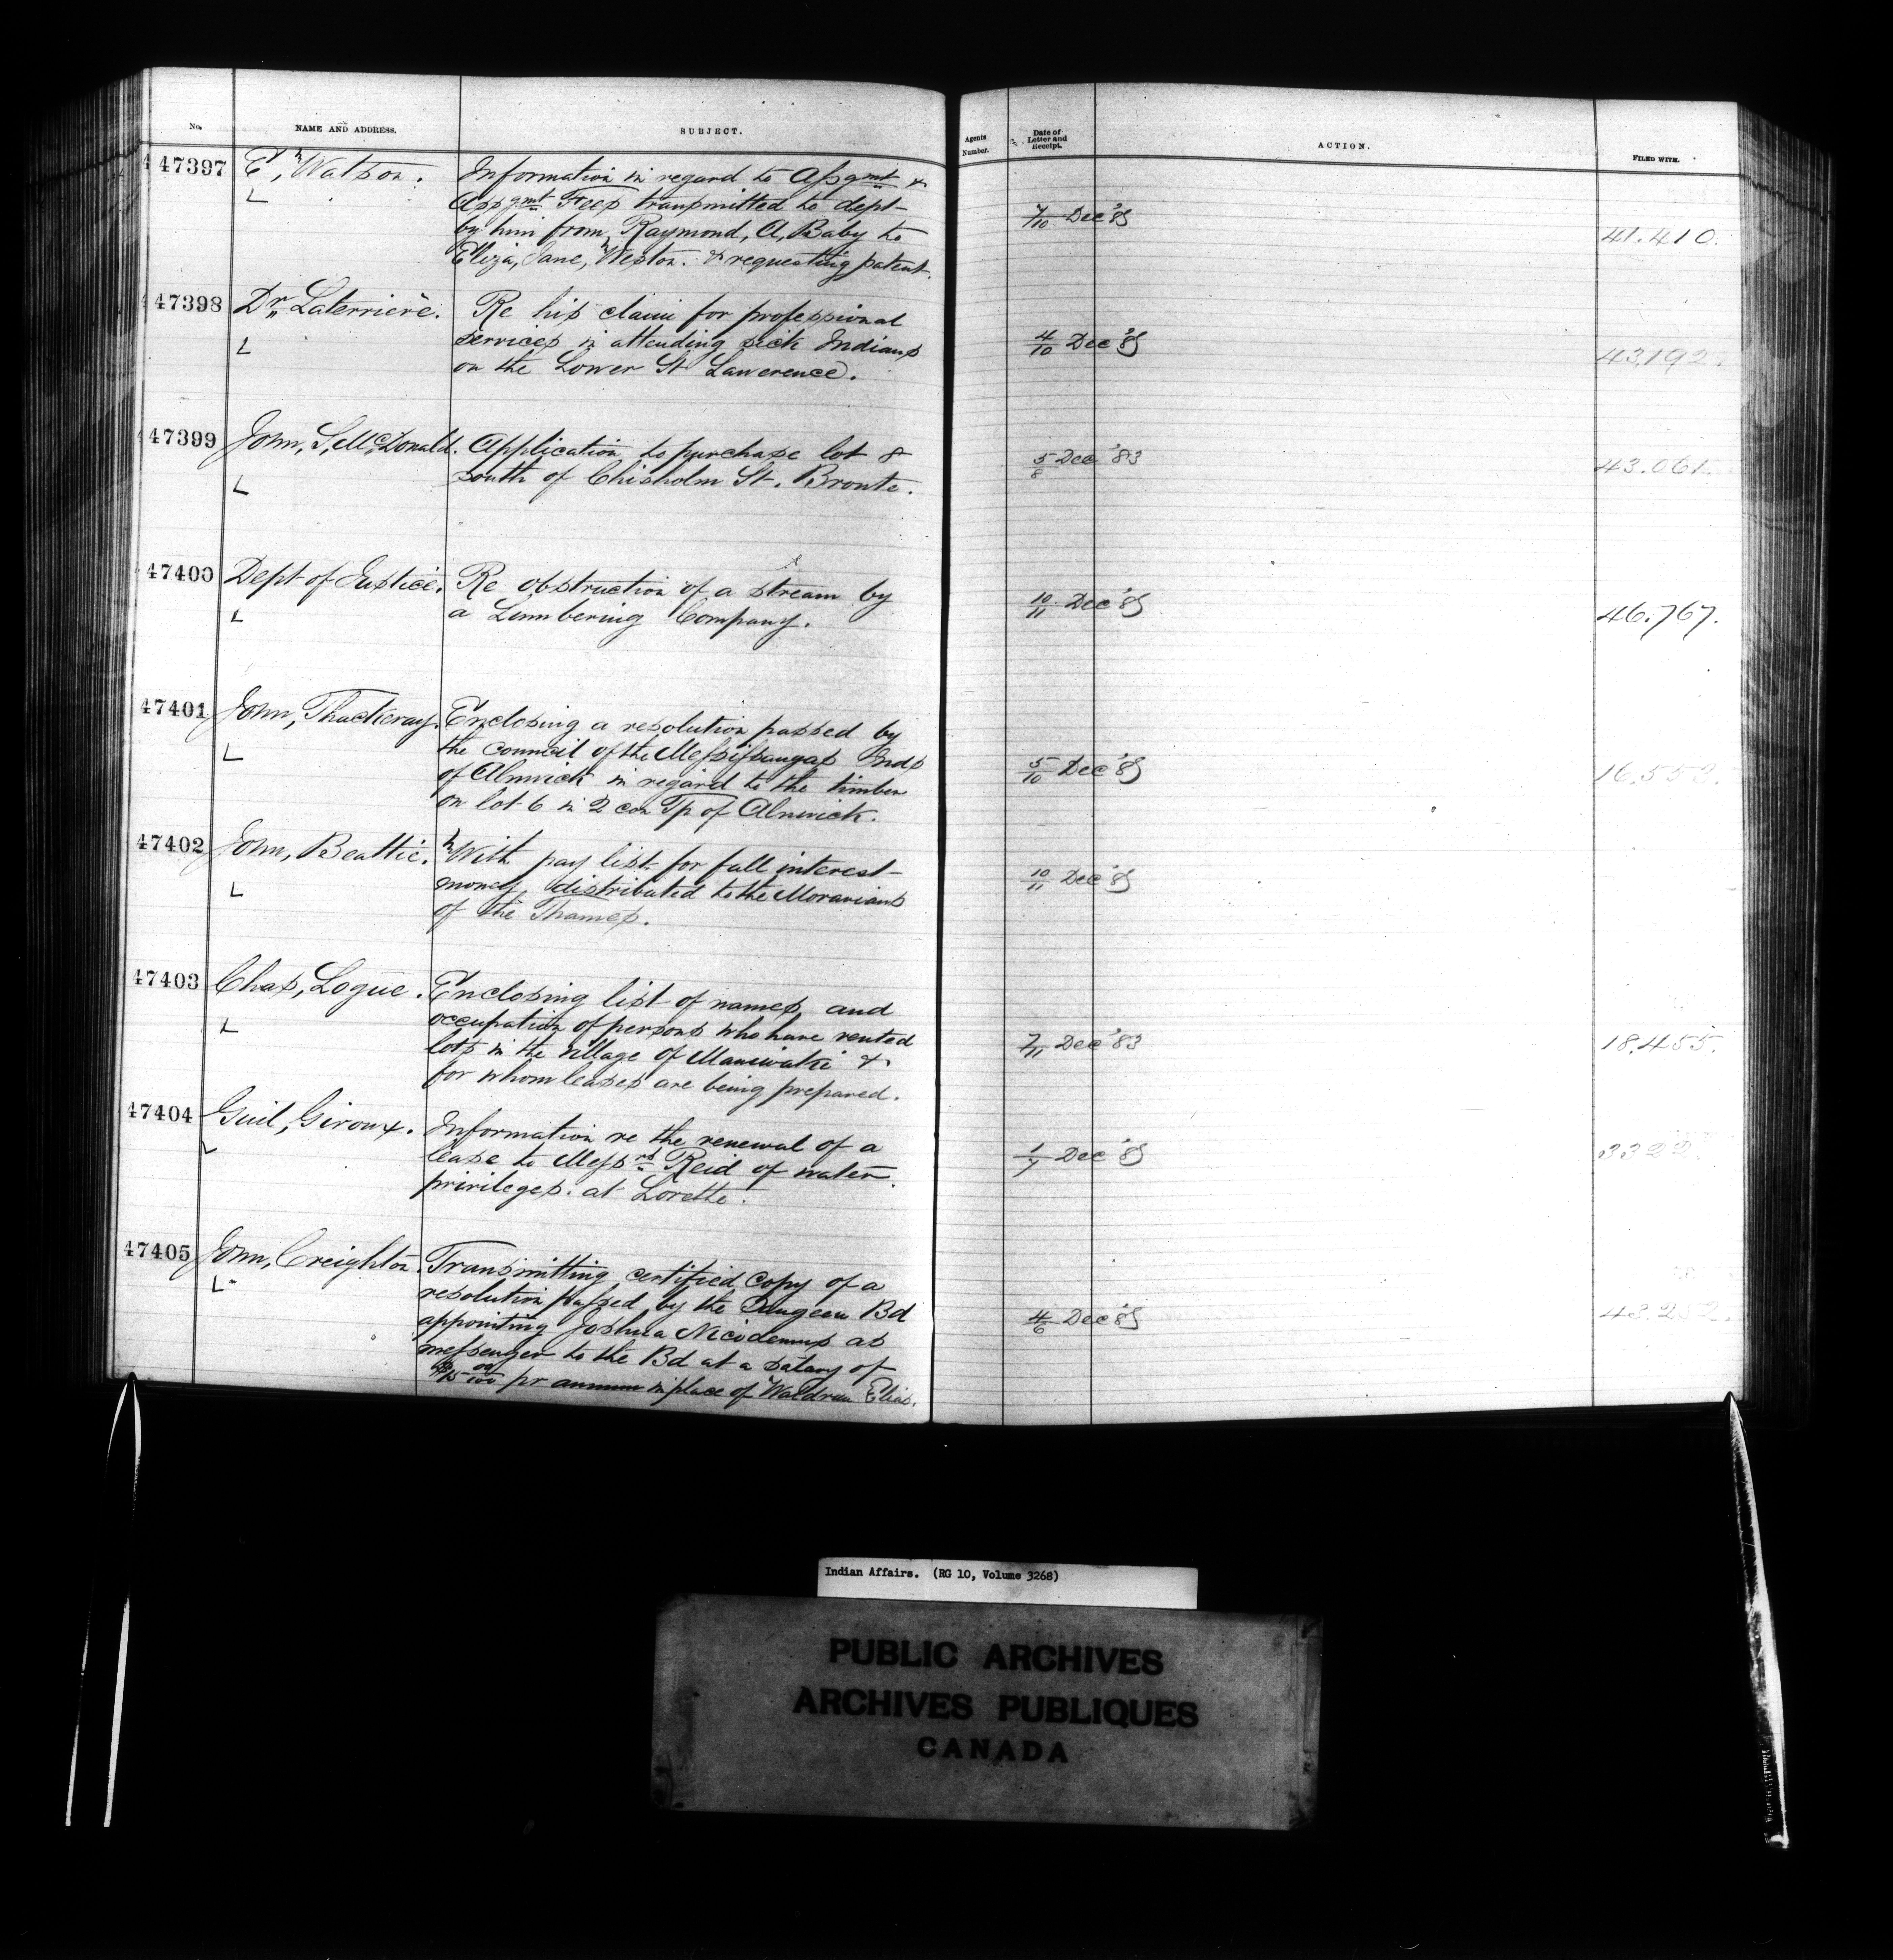 No. NAME AND ADDRESS. SUBJECT. Agents Number. Date of Letter and Receipt. ACTION. FILED WITH.
47397 E, Watson. Information in regard to Assgmt &
Assgmt Fees transmitted to dept
by him from Raymond, A, Baby to
Eliza, Jane, Weston. & requesting patent.
7/10 Dec '83
41.410.
47398 Dr Laterriere. Re his claim for professional
services in attending sick Indians
on the Lower St Lawerence.
4/10 Dec '83
43.192.
47399 John, S, McDonald. Application to purchase lot 8
south of Chisholm St. Bronte.
5/8 Dec '83
43.061.
47400 Dept of Justice. Re obstruction of a stream by
a Lumbering Company.
10/11 Dec '83
46.767.
47401 John, Thackeray. Enclosing a resolution passed by
the council of the Messissaugas Inds
of Alnwick in regard to the timber
on lot 6 in 2 con Tp of Alnwick.
5/10 Dec '83
16.552.
47402 John, Beattie. With pay list for fall interest
money, distributed to the Moravians
of the Thames.
10/11 Dec '83
47403 Chas, Logue. Enclosing list of names, and
occupation of persons who have rented
lots in the village of Maniwaki &
for whom leases are being prepared.
7/11 Dec '83
18.455.
47404 Guil, Giroux. Information re the renewal of a
lease to Messrs Reid of water
privileges. at Lorette.
1/7 Dec '83
47405 John, Creighton. Transmitting certified copy of a
resolution passed by the Saugeen Bd
appointing Joshua Nicodemus as
messenger to the Bd at a salary of
$15 00/100 pr annum in place of Waldron Elias.
4/6 Dec '83
Indian Affairs. (RG 10, Volume 3268)
PUBLIC ARCHIVES
ARCHIVES PUBLIQUES
CANADA